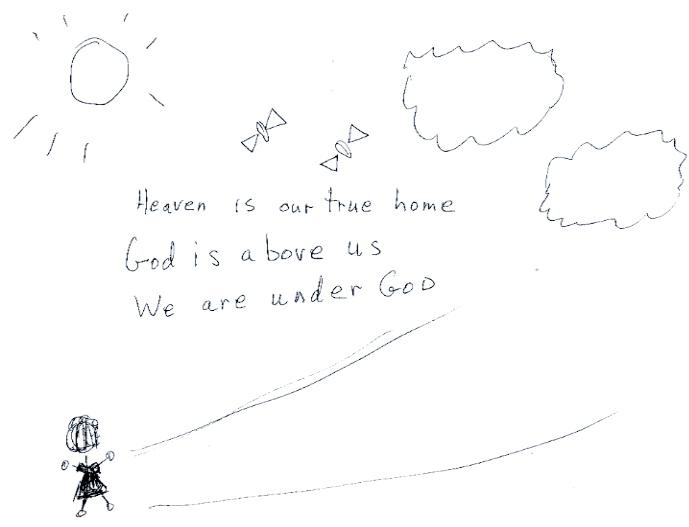 Heaven is our true home
God is above us
We are under GoD